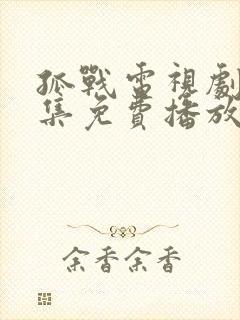 孤戰電視劇
集免費播放
余香余香